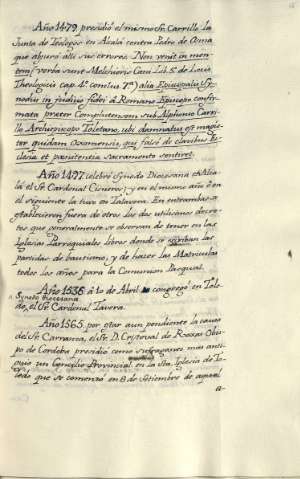 Año 1479, presidió el mismo Sr. Carrillo la
Junta de Teólogos en Alcalá contra Pedro de Osma
que abjuró allí sus errores. Non venit in men-
tem, verba sunt Melchioris Cani Lib. 5º de Locis
Theologicis cap. 4º conclus. 7ª, alia Episcopalis Sy-
nodus in judicio fidei a Romano Episcopo confir-
mata preter Complutensem sub Alphonso Carri-
llo Archiepiscopo Toletano, ubi damnatus est magis-
ter quidam Oxomensis, qui falso de clavibus Ec-
clesie et penitentie sacramento sentiret.
Año 1497 celebró Synodo Diocesana en Alca-
lá el Sr. Cardenal Cisneros; y en el mismo año ó en
el siguiente la tuvo en Talavera. En entrambas se
establecieron fuera de otros los dos utilisimos decre-
tos que generalmente se observan de tener en las
Iglesias Parroquiales libros donde se escriban las
partidas de bautismo, y de hacer las Matriculas
todos los años para la Comunion Pasqual.
Año 1536 á 10 de Abril congregó en Tole-
Synodo Diocesana
do, el Sr. Cardenal Tavera.
Año 1565, por estar aun pendiente la causa
del Sr. Carranza, el Sr. D. Cristoval de Roxas Obis-
po de Cordoba presidió como sufraganeo mas anti-
guo un Concilio Provincial en la Sta. Iglesia de To-
ledo que se comenzó en 8 de Setiembre de aquel
a-